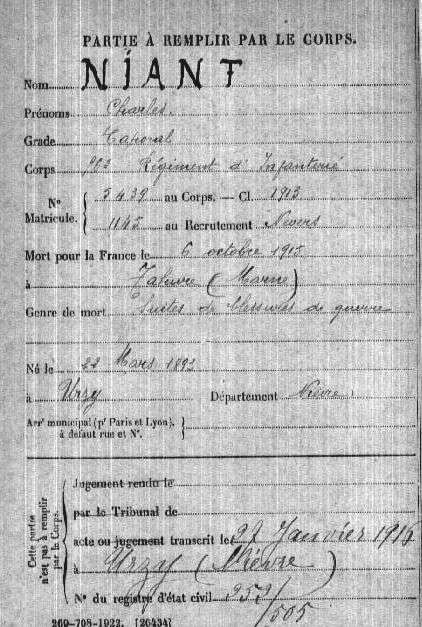 PARTIE À REMPLIR PAR LE CORPS.
Nom NIANT
Prénoms Charles.
Grade Caporal
Corps Régiment d'Infanterie
N° Matricule. { 5439 au Corps. — Cl. 1913
1145 au Recrutement Nevers
Mort pour la France le 6 octobre 1915
à Tahure (Marne)
Genre de mort Suites de blessures de guerre
Né le 22 Mars 1893
à Urzy Département Nièvre
Arrt municipal (pr Paris et Lyon), à défaut rue et N°. }
Cette partie n'est pas à remplir par le Corps.
Jugement rendu le
par le Tribunal de
acte ou jugement transcrit le 27 Janvier 1916
à Urzy (Nièvre)
N° du registre d'état civil
/505
269-708-1922. [26434]